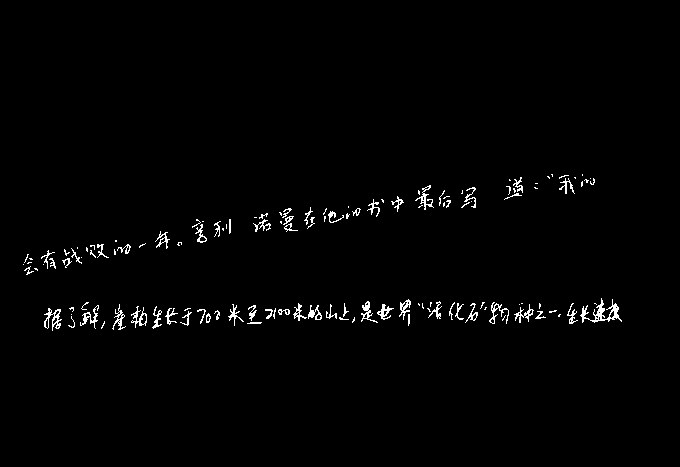 会有战败的一年。亨利 诺曼在他的书中最后写 道：“我的
据了解，崖柏生长于700米至2100米的山上，是世界“活化石”物种之一．生长速度